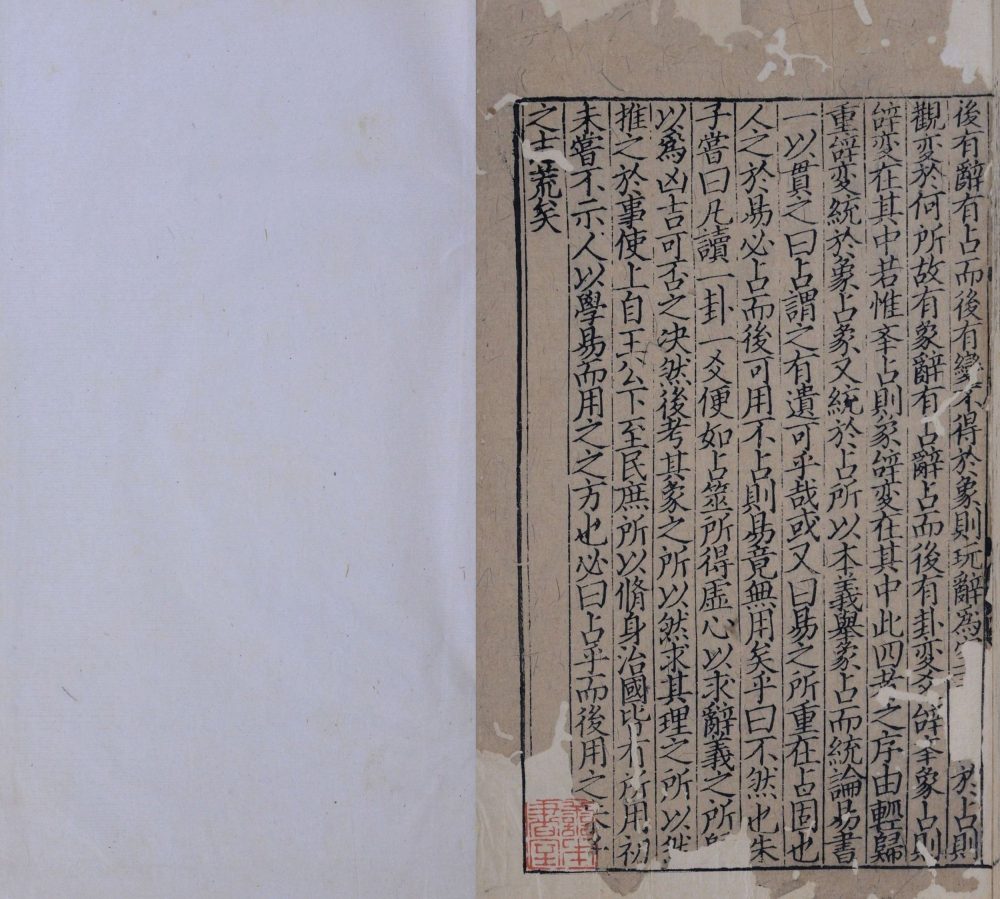 後有辭有占而後有變不得於象則玩辭爲 於占則
觀变於何所故有象辭有占辭占而後有卦变爻辝 象占則
辝变在其中若惟 占則象辝变在其中此四者之序由輕歸
重辝变統於象占象又統於占所以本義舉象占而統論易書
一以貫之曰占謂之有遺可乎哉或又曰易之所重在占固也
人之於易必占而後可用不占則易竟無用矣乎曰不然也朱
子嘗曰凡讀一卦一爻便如占筮所得虛心以求辭義之所
以爲凶吉可否之决然後考其象之所以然求其理之所以然
推之於事使上自王公下至民庶所以脩身治國皆有所用初
未嘗不示人以學易而用之之方也必曰占乎而後用之
之 荒矣
書室